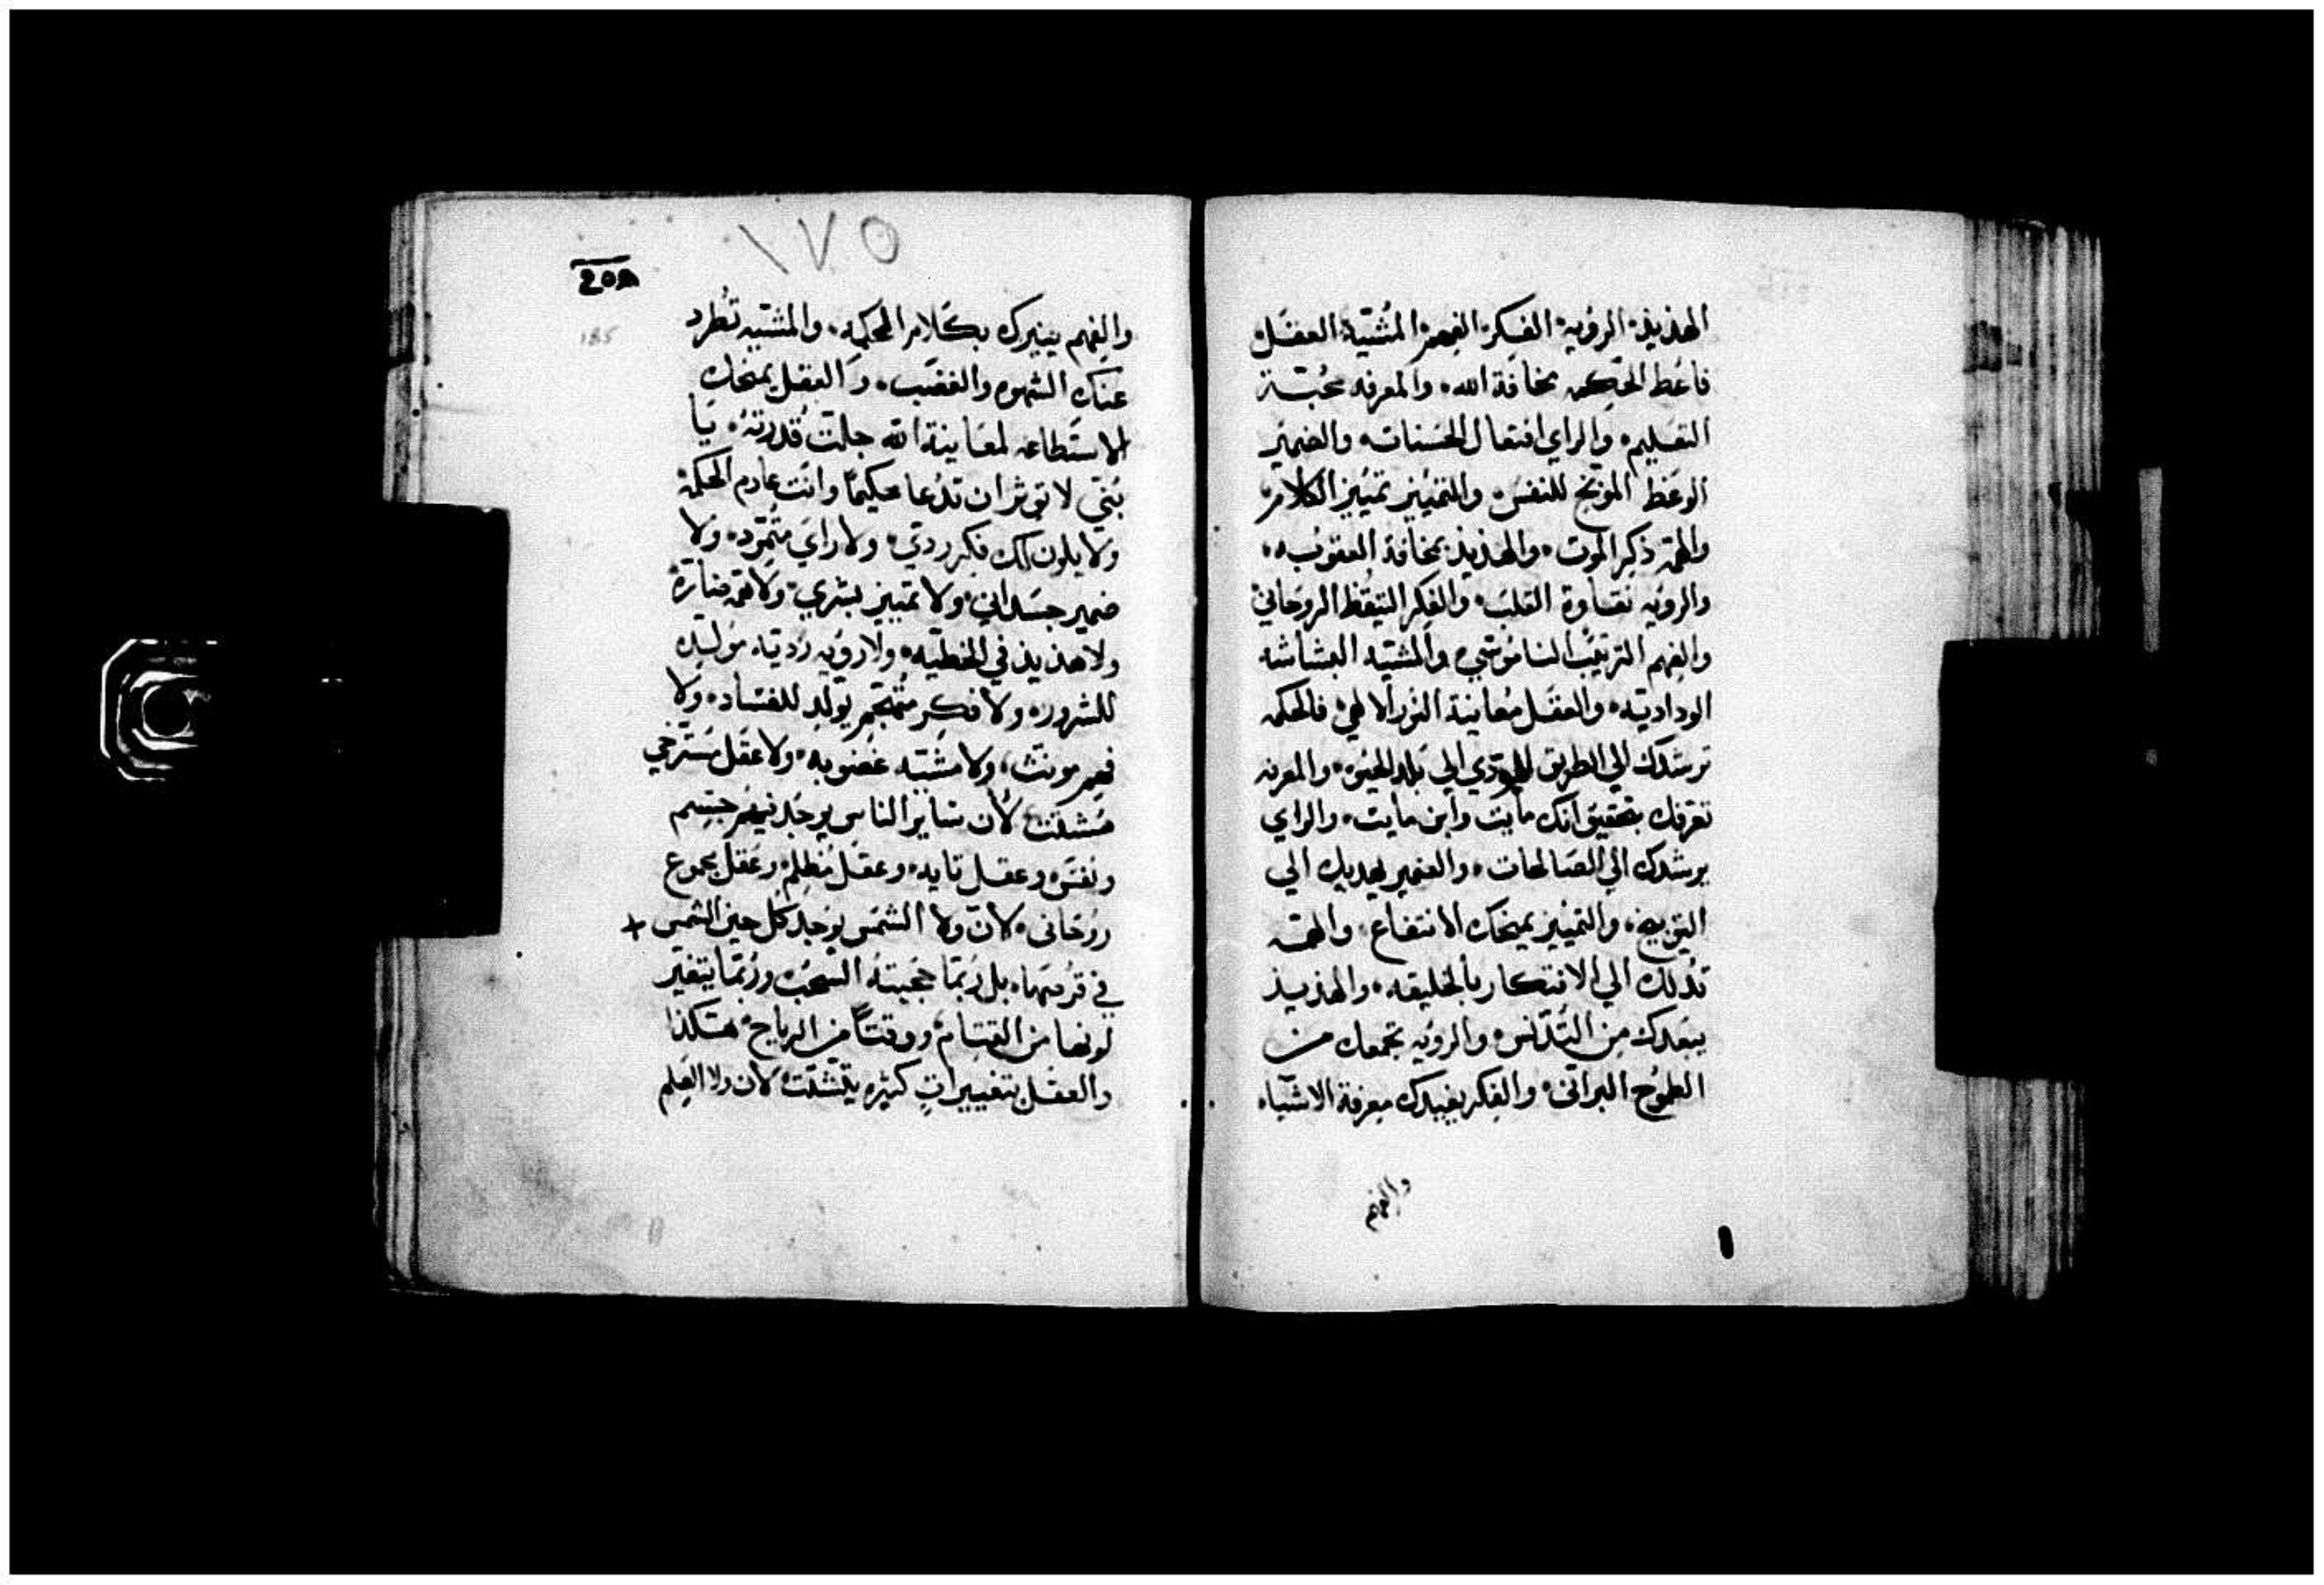 الهذيذ، الرويه، الفكر، الفهم، المشيّة، العقل
فاعط الحكمه مخافة الله، والمعرفه محبّة
التعليم، والراي افتعال الحسنات، والضمير
الوعظ الموبخ للنفس، والتمييز تمييز الكلام
والهمّة ذكر الموت، والهذيذ بمخافة العقوبه،
والرويه نقاوة القلب، والفكر التيقظ الروحاني
والفهم الترتيب الناموسي، والمشيّه البشاشه
الوداديّه، والعقل معاينة النور الالهي، فالحكمه
ترشدك الي الطريق المودي الي بلد الحيوه، والمعرفه
تعرفك بتحقيق انك مايت وابن مايت، والراي
يرشدك الي الصالحات، والضمير يهديك الي
التوبيخ، والتمييز يمنحك الانتفاع، والهمّه
تدلك الي الافتكار بالخليقه، والهذيذ
يبعدك من التدنس، والرويه تجمعك من
الطموح البراني، والفكر يفيدك معرفة الاشياء
والفهم
١٧٥
185
والفهم ينيرك بكلام الحكمه، والمشيّه تطرد
عنك الشهوه والغضب، والعقل يمنحك
الاستطاعه لمعاينة الله جلت قدرته، يا
بُنيّ لا توثر ان تدعا حكيمًا وانت عادم الحكمة
ولا يكون لك فكر ردي، ولا راي متمرّد، ولا
ضمير جسداني، ولا تمييز بشري، ولا همّة
ولا هذيذ في الخطيّه، ولا رويه رديّه مولّده
للشرور، ولا فكر متجهم يولد للفساد، ولا
فهم مونث، ولا مشيّه غضوبه، ولا عقل مسترخي
مشتت لان ساير الناس يوجد فيهم جسم
ونفس وعقل تايه، وعقل مظلم، وعقل مجموع
روحاني، لان ولا الشمس يوجد كل حين الشمس
في قرصها، بل ربّما حجبته السحب وربّما يتغيّر
لونها من القتام، ووقتًا من الرياح، هكذا
والعقل بتغييرات كثيره يتشتت، لان ولا العلم